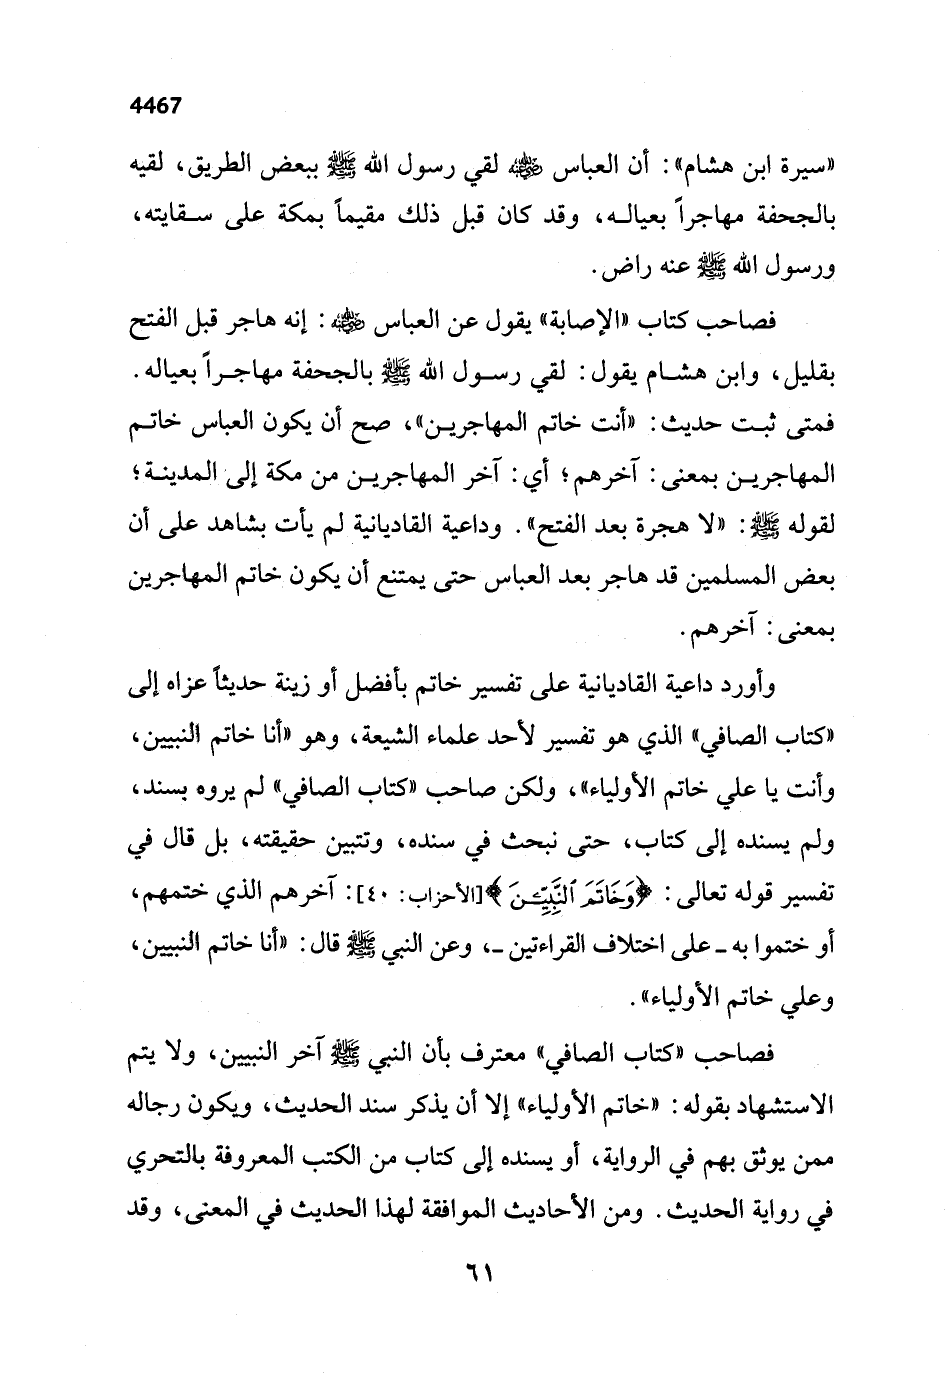 4467
«سيرة ابن هشام»: أن العباس رضي الله عنه لقي رسول الله ﷺ ببعض الطريق، لقيه
بالجحفة مهاجراً بعياله، وقد كان قبل ذلك مقيماً بمكة على سقايته،
ورسول الله ﷺ عنه راض.
فصاحب كتاب «الإصابة» يقول عن العباس رضي الله عنه: إنه هاجر قبل الفتح
بقليل، وابن هشام يقول: لقي رسول الله ﷺ بالجحفة مهاجراً بعياله.
فمتى ثبت حديث: «أنت خاتم المهاجرين»، صح أن يكون العباس خاتم
المهاجرين بمعنى: آخرهم؛ أي: آخر المهاجرين من مكة إلى المدينة؛
لقوله ﷺ: «لا هجرة بعد الفتح». وداعية القاديانية لم يأت بشاهد على أن
بعض المسلمين قد هاجر بعد العباس حتى يمتنع أن يكون خاتم المهاجرين
بمعنى: آخرهم.
وأورد داعية القاديانية على تفسير خاتم بأفضل أو زينة حديثاً عزاه إلى
«كتاب الصافي» الذي هو تفسير لأحد علماء الشيعة، وهو «أنا خاتم النبيين،
وأنت يا علي خاتم الأولياء»، ولكن صاحب «كتاب الصافي» لم يروه بسند،
ولم يسنده إلى كتاب، حتى نبحث في سنده، وتتبين حقيقته، بل قال في
تفسير قوله تعالى: ﴿وَخَاتَمَ ٱلنَّبِيِّـۧنَ﴾[الأحزاب: ٤٠]: آخرهم الذي ختمهم،
أو ختموا به ـ على اختلاف القراءتين ـ، وعن النبي ﷺ قال: «أنا خاتم النبيين،
وعلي خاتم الأولياء».
فصاحب «كتاب الصافي» معترف بأن النبي ﷺ آخر النبيين، ولا يتم
الاستشهاد بقوله: «خاتم الأولياء» إلا أن يذكر سند الحديث، ويكون رجاله
ممن يوثق بهم في الرواية، أو يسنده إلى كتاب من الكتب المعروفة بالتحري
في رواية الحديث. ومن الأحاديث الموافقة لهذا الحديث في المعنى، وقد
٦١